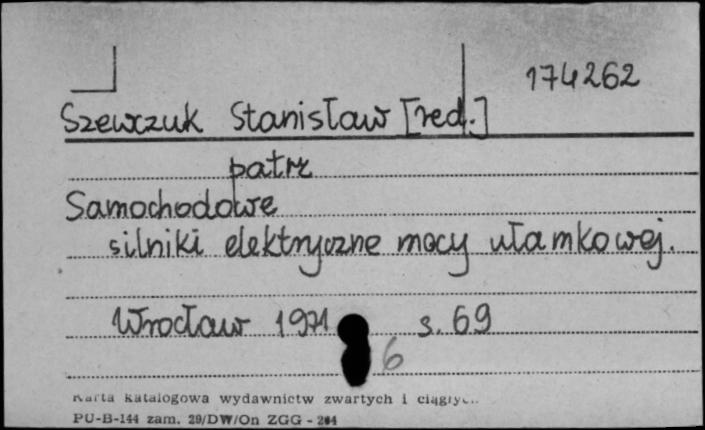 174262
Szewczuk Stanisław [red.]
patrz
Samochodowe
silniki elektryczne mocy ułamkowej.
Wrocław 1971 s. 69
6
Karta katalogowa wydawnictw zwartych i ciągłych
PU-B-144 zam. 29/DW/On ZGG - 204